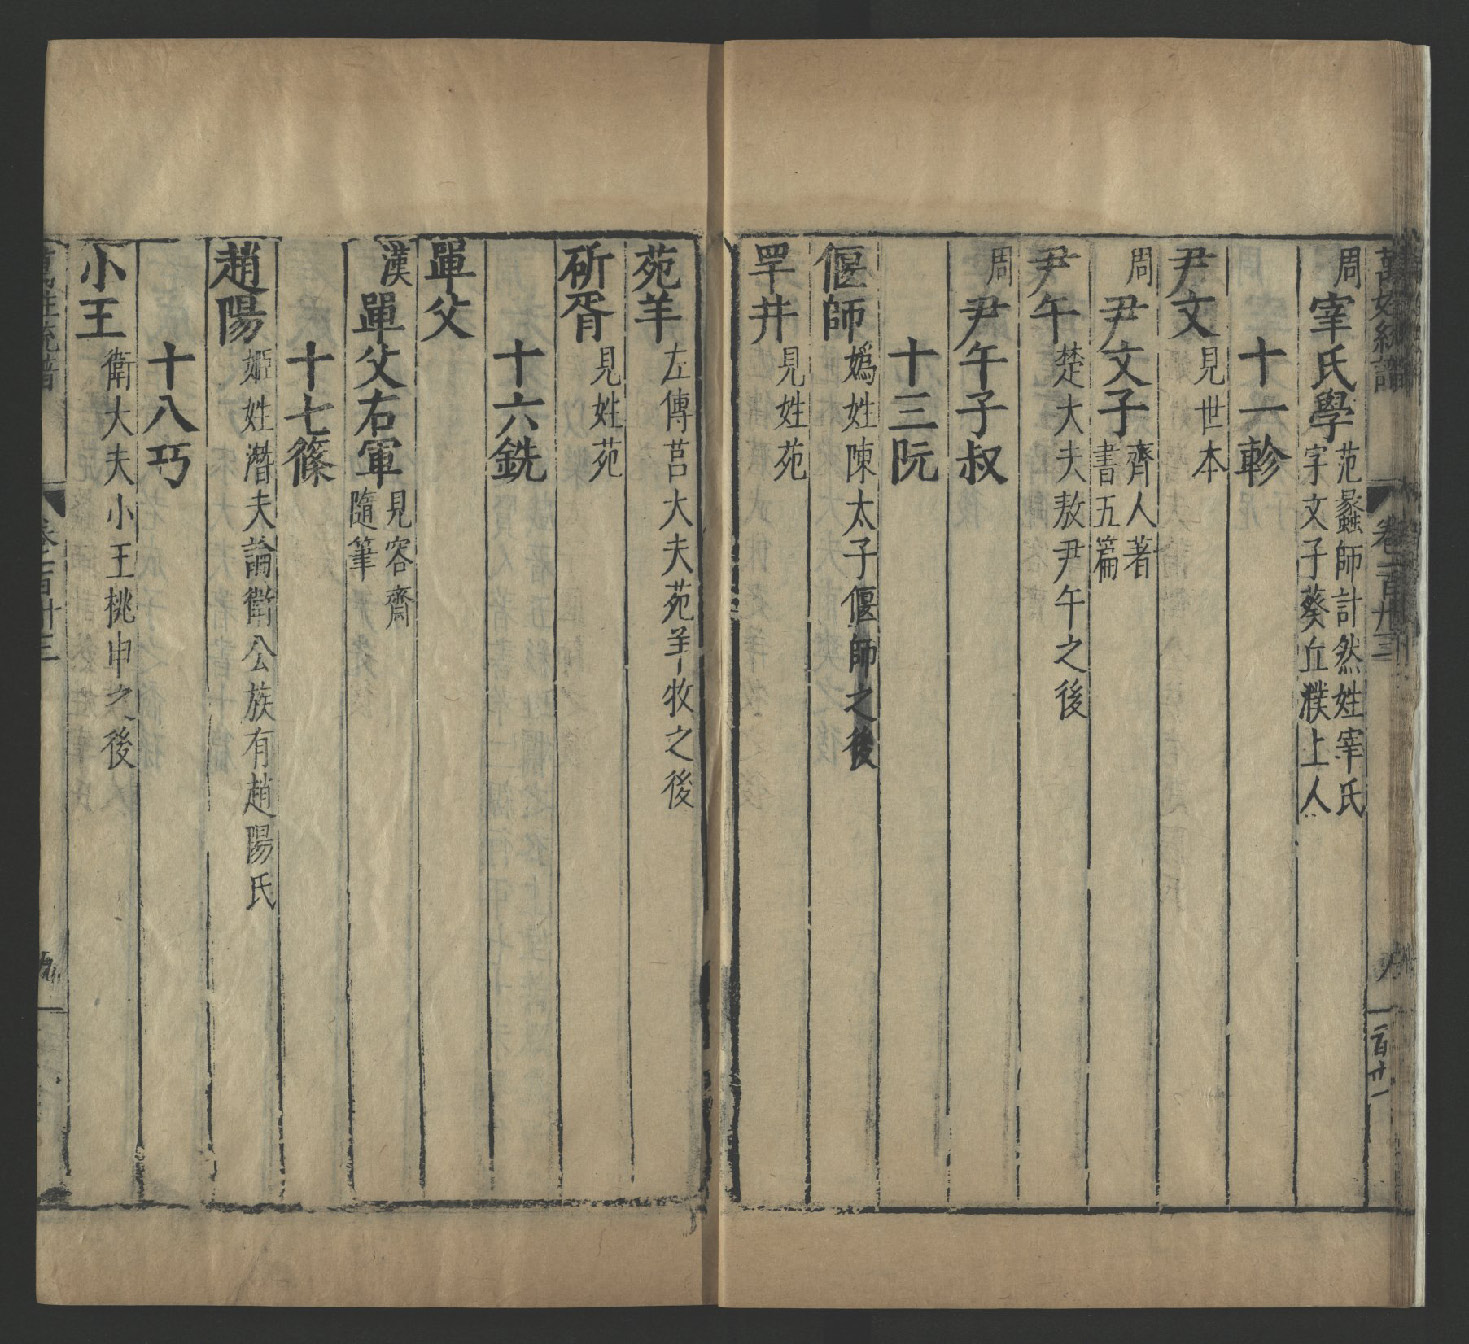 萬姓統譜
卷一百卅三
周宰氏學范蠡師計然姓宰氏
字文子葵丘濮上人
十一軫
尹文見世本
周尹文子齊人著
書五篇
尹午楚大夫敖尹午之後
周尹午子叔
十三阮
偃師媯姓陳太子偃師之後
罕井見姓苑
苑羊左傳莒大夫苑羊牧之後
斫胥見姓苑
十六銑
單父
漢單父右軍見容齋
隨筆
十七篠
趙陽姬姓潛夫論衛公族有趙陽氏
十八巧
小王衛大夫小王桃申之後